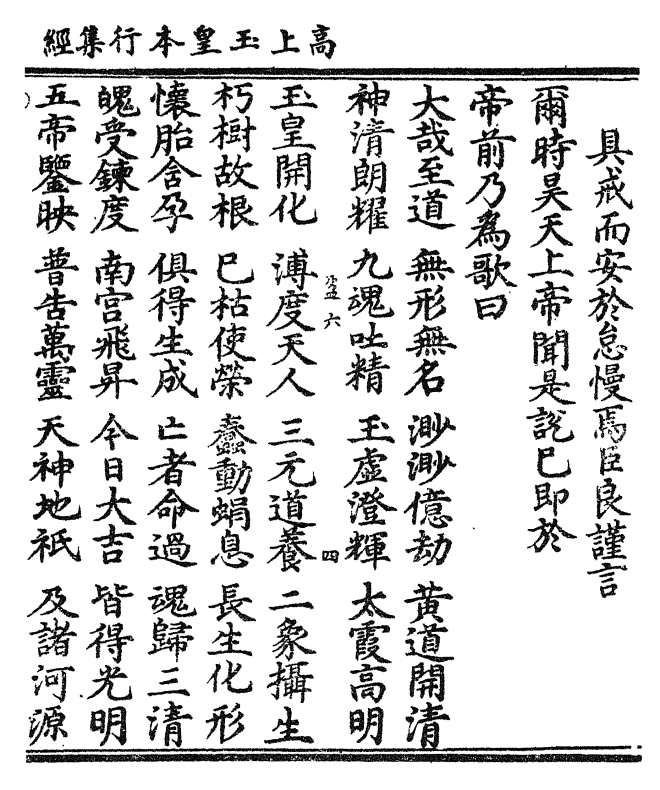 高上玉皇本行集經
具戒而安於怠慢焉臣良謹言
爾時昊天上帝聞是說已即於
帝前乃為歌曰
大哉至道 無形無名 渺渺億劫 黃道開清
神清朗耀 九魂吐精 玉虛澄輝 太霞高明
盈六 四
玉皇開化 溥度天人 三元道養 二象攝生
朽樹故根 已枯使榮 蠢動蜎息 長生化形
懷胎含孕 俱得生成 亡者命過 魂歸三清
魄受鍊度 南宮飛昇 今日大吉 皆得光明
五帝鑒映 普告萬靈 天神地祇 及諸河源